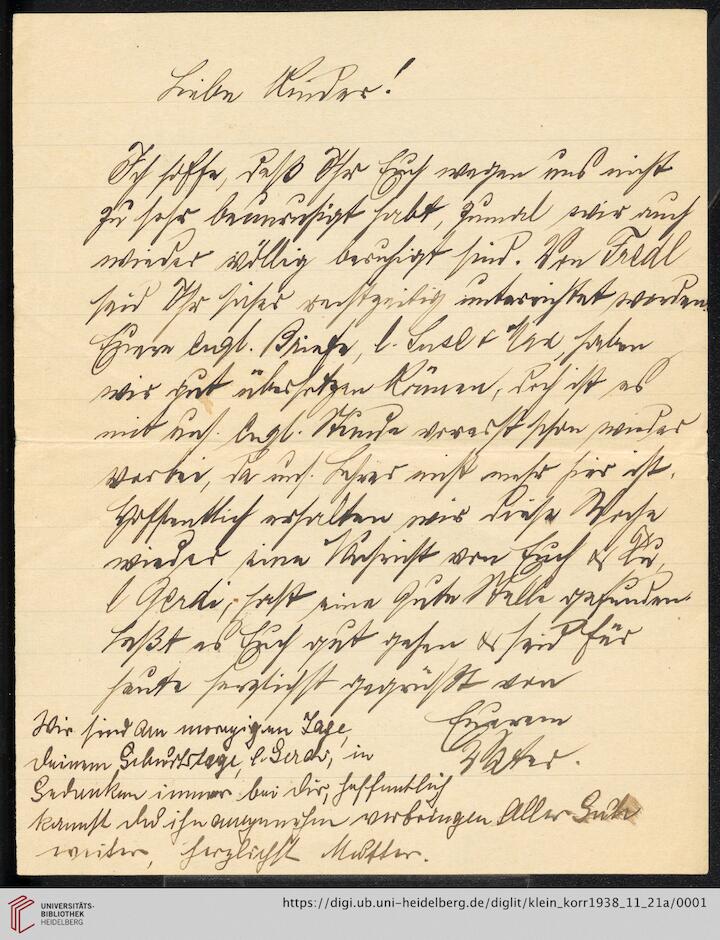 Liebe Kinder!
Ich hoffe, daß Ihr Euch wegen uns nicht
zu sehr beunruhigt habt, zumal wir auch
wieder völlig beruhigt sind. Von Fredl
seid Ihr sicher rechtzeitig unterrichtet worden.
Euere engl. Briefe, l. Susl & haben
wir gut übersetzen können, doch ist es
mit uns. engl. Stunde vorerst schon wieder
vorbei, da uns. Lehrer nicht mehr hier ist.
Hoffentlich erhalten wir diese Woche
wieder eine Nachricht von Euch & Du,
l Gerdi, hast eine gute Stelle gefunden.
Laßt es Euch gut gehen & seid für
heute herzlichst gegrüßt von
Euerem
Vater.
Wir sind am morgigen Tage,
deinem Geburtstage, l. Gerdi, in
Gedanken immer bei dir, hoffentlich
kannst du ihn angenehm verbringen. Alles Gute
weiter, herzlichst Mutter.
UNIVERSITÄTS-
BIBLIOTHEK
HEIDELBERG
https://digi.ub.uni-heidelberg.de/diglit/klein_korr1938_11_21a/0001